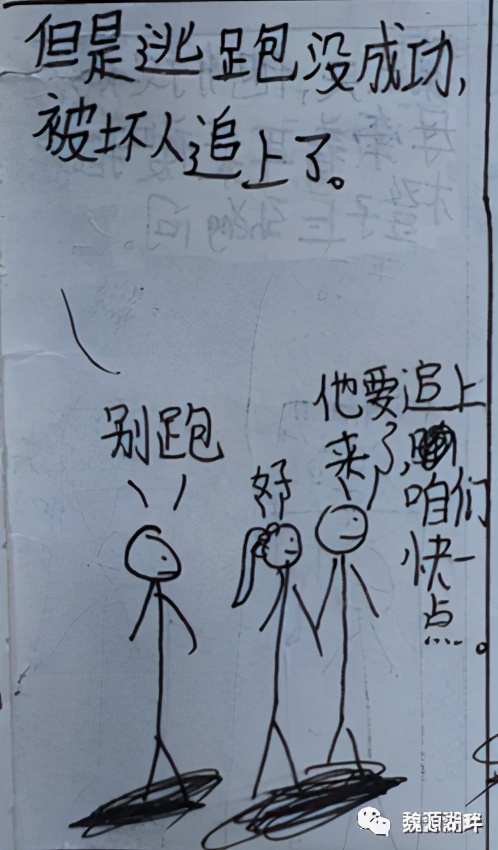 但是逃跑没成功,
被坏人追上了。
别跑
好
他要追上
来了,
咱们
快一
点……。
魏源湖畔